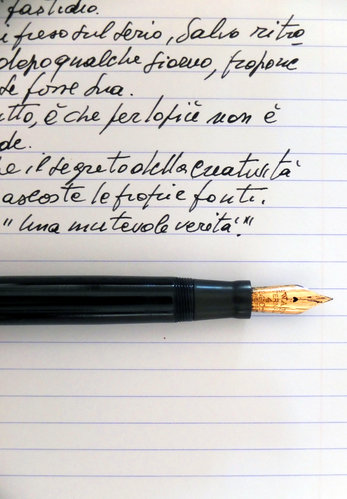 fastidio.
preso sul serio, salvo ritro
dopo qualche giorno, propone
se fosse sua.
è che per lopiù non è
de.
e il segreto della creatività
ascoste le proprie fonti.
"Una mutevole verità".